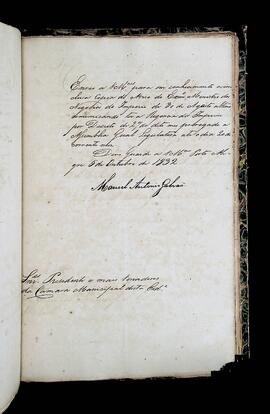 Envio a VMces para seu conhecimento a in-
clusa Copia do Aviso do Exmo Ministro dos
Negocios do Imperio de 30 de Agosto ultimo
communicando ter a Regencia do Imperio
por Decreto de 29 do dito mez prorogado a
Assemblea Geral Legislativa até o dia 20 do
corrente mez.
Deos Guarde a VMces Porto Ale-
gre 5 de Outubro de 1832
Manoel Antonio Galvão
Snr. Presidente e mais Vereadores
da Camara Municipal desta Cide